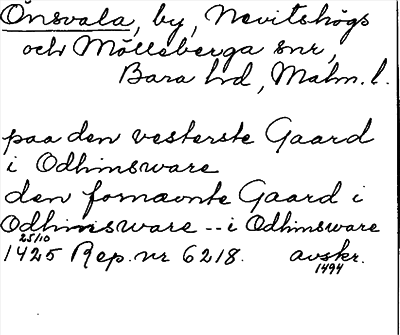 Önsvala, by, Nevitshögs
och Mölleberga snr,
Bara hd, Malm. l.
paa den vesterste Gaard
i Odhinsware
den fornævnte Gaard i
Odhinsware -- i Odhinsware
25/10
1425 Rep. nr 6218. avskr.
1494